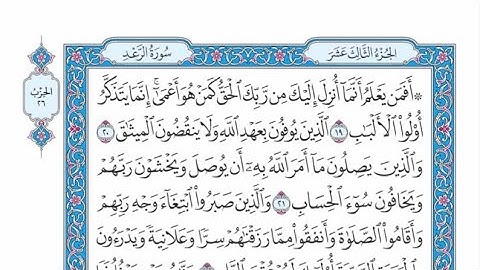 الجُزْءُ الثَّالِثَ عَشَرَ
سُورَةُ الرَّعْدِ
الحِزْبُ
٢٦
۞ أَفَمَن يَعْلَمُ أَنَّمَآ أُنزِلَ إِلَيْكَ مِن رَّبِّكَ ٱلْحَقُّ كَمَنْ هُوَ أَعْمَىٰٓۚ إِنَّمَا يَتَذَكَّرُ
أُو۟لُوا۟ ٱلْأَلْبَٰبِ ١٩ ٱلَّذِينَ يُوفُونَ بِعَهْدِ ٱللَّهِ وَلَا يَنقُضُونَ ٱلْمِيثَٰقَ ٢٠
وَٱلَّذِينَ يَصِلُونَ مَآ أَمَرَ ٱللَّهُ بِهِۦٓ أَن يُوصَلَ وَيَخْشَوْنَ رَبَّهُمْ
وَيَخَافُونَ سُوٓءَ ٱلْحِسَابِ ٢١ وَٱلَّذِينَ صَبَرُوا۟ ٱبْتِغَآءَ وَجْهِ رَبِّهِمْ
وَأَقَامُوا۟ ٱلصَّلَوٰةَ وَأَنفَقُوا۟ مِمَّا رَزَقْنَٰهُمْ سِرًّا وَعَلَانِيَةً وَيَدْرَءُونَ